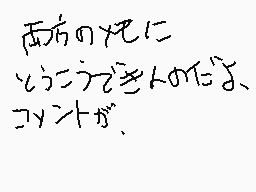 両方のメモに
とうこうできんのだよ、
コメントが、